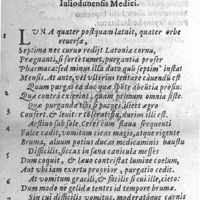 Iuliodunensis Medici.
LVNA quater postquam latuit, quater orbe
reuersa,
Septima nec curuo redijt Latonia cornu,
Pregnanti, si forte tumet, purgantia prosfer
Pharmaca: sed minus illa dato quà septim' instat
Mensis. At ante, vel vlterius tentare cauendũ est
Quum purget ea duc quæ spõte abolita prosũt.
Quæ contrà exierint, quam primum omnia siste.
Quæ purganda tibi si purges, licet ægro
Confert, & leuiter tolerat: sin, durius illi est.
Aestiuo sub sole, Ceres cum flaua frequenti
Falce cadit, vomitum cieas magis, atque rigente
Bruma, aluum potius ducat medicamen bausta
Difficilis, sicca in sana canicula missu
Dum coquit, & læuo contristat lumine coelum,
Aut vbi iam exortu proprior, purgatio cedit.
At vomitum gracili, & facili sicca ille, cieto:
Dum modo ne gelida tentes id tempore brumæ.
Sin cui difficilis vomitus, moderatáque carnis